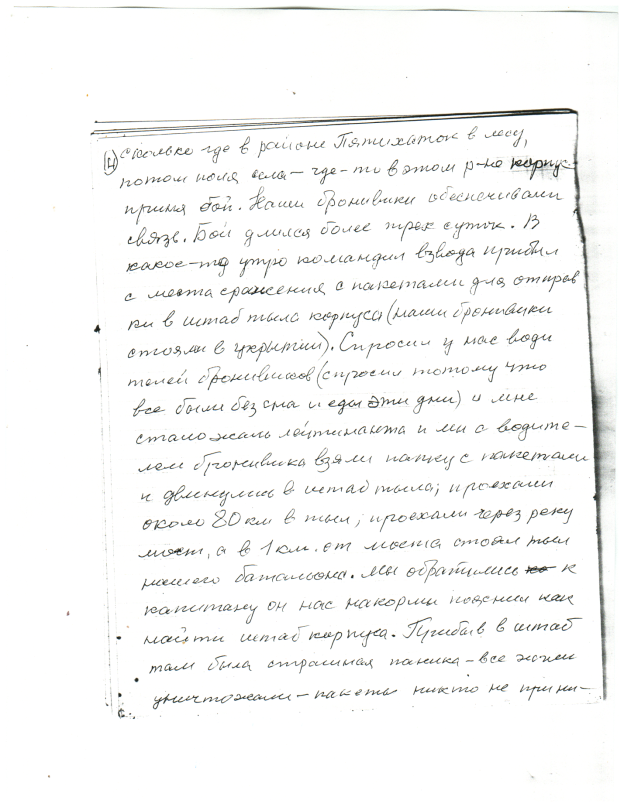 (4) сколько где в районе Пятихаток в лесу,
потом поля села – где-то в этом р-не корпус
принял бой. Наши броневики обеспечивали
связь. Бой длился более трех суток. В
какое-то утро командир взвода прибыл
с места сражения с пакетами для отправ
ки в штаб тыла корпуса (наши броневики
стояли в укрытии). Спросил у нас води
телей броневиков (спросил потому что
все были без сна и еды эти дни) и мне
стало жаль лейтинанта и ми с водите-
лем броневика взяли папку с пакетами
и двинулись в штаб тыла; проехали
около 80 км в тыл; проехали через реку
мост, а в 1 км. от моста стоял тыл
нашего батальона. Мы обратились к
капитану он нас накормил пояснил как
найти штаб корпуса. Прибыв в штаб
там была страшная паника – все жгли
уничтожали – пакеты никто не прини-